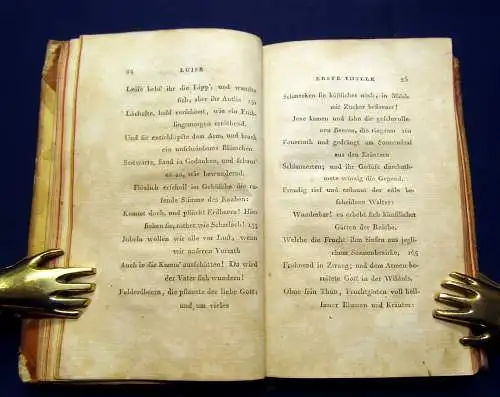 24 LUISE
Leise bebt' ihr die Lipp', und wandte
sich, aber ihr Antliz 150
Lächelte, hold verschämt, wie ein Früh-
lingsmorgen erröthend.
Und sie entschlüpfte dem Arm, und brach
ein unscheinbares Blümchen
Seitwärts, stand in Gedanken, und schaut'
es an, wie bewundernd.
Plözlich erscholl im Gebüsche die ru-
fende Stimme des Knaben:
Kommt doch, und pflückt Erdbeeren! Hier
stehen sie, röther wie Scharlach! 155
Jubeln wollen wir alle vor Lust, wenn
wir unseren Vorrath
Auch in die Kumm' ausschütten! Da wird
der Vater sich wundern!
Felderdbeern, die pflanzte der liebe Gott;
und, um vieles
ERSTE IDYLLE 25
Schmecken sie köstlicher noch, in Milch
mit Zucker besteuet!
Jene kamen und sahn die geschwollenen Beeren, die ringsum 160
Feuerroth und gedrängt am Sonnenstral
aus den Kräutern
Schimmerten; und ihr Gedüft durchath-
mete würzig die Gegend.
Freudig rief und erstaunt der edle be-
scheidene Walter:
Wunderbar! es erhebt sich künstlicher
Garten der Reiche,
Welche die Frucht ihm zinsen aus jegli-
chem Sonnenbezirke, 165
Fröhnend in Zwang; und dem Armen be-
reitete Gott in der Wildnis,
Ohne sein Thun, Fruchtgarten voll heil-
samer Blumen und Kräuter: